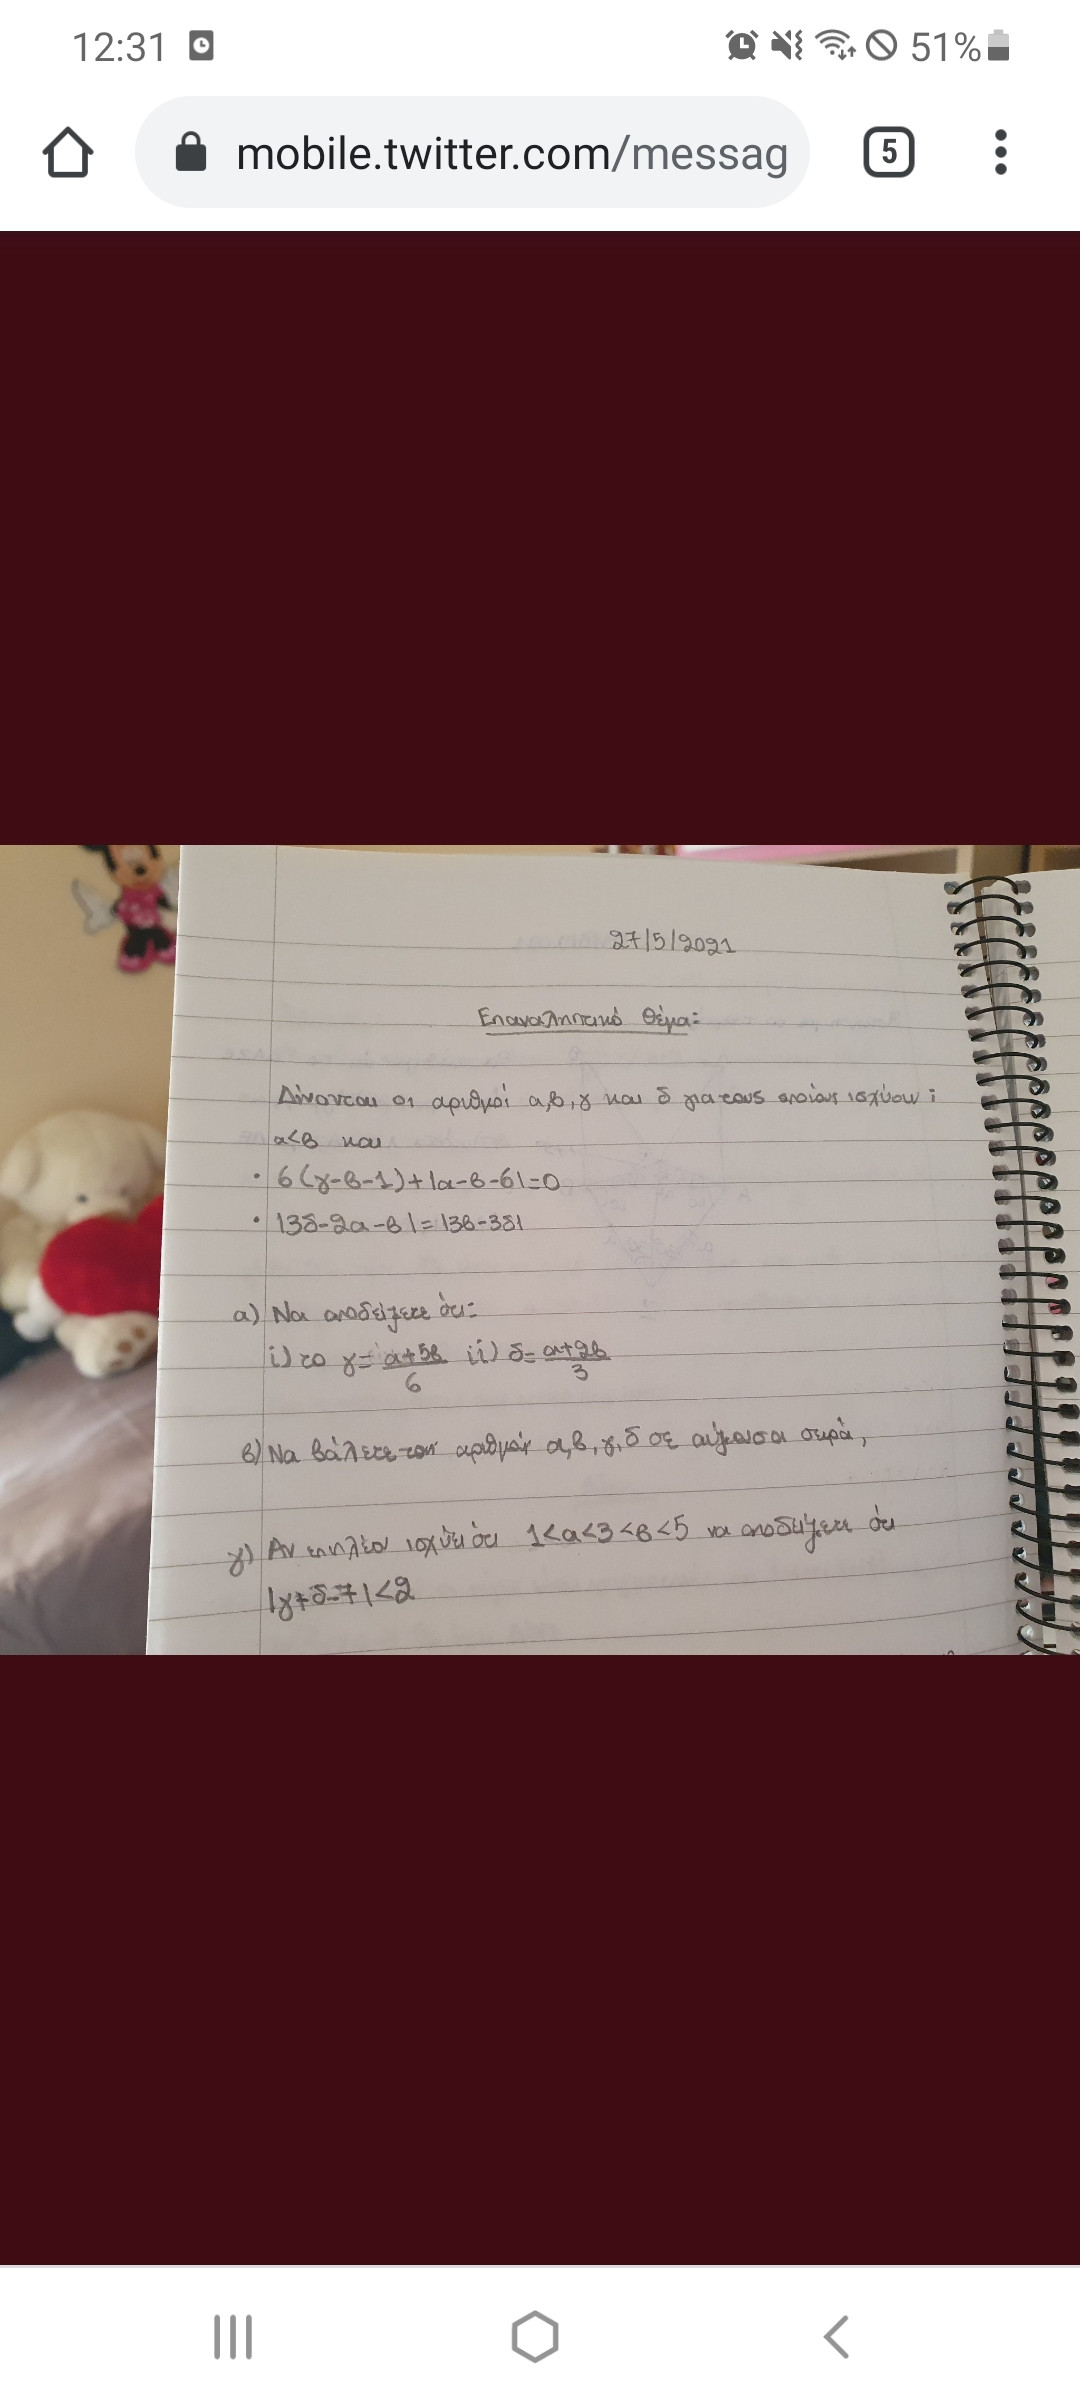 12:31
51%
mobile.twitter.com/messag
5
27/5/2021
Επαναληπτικό Θέμα:
Δίνονται οι αριθμοί α,β,γ και δ για τους οποίους ισχύουν:
α<β και
• 6(γ-β-1)+|α-β-6|=0
• |3δ-2α-β|=|3β-3δ|
α) Να αποδείξετε ότι:
i) το γ=α+5β/6 ii) δ=α+2β/3
β) Να βάλετε τους αριθμούς α,β,γ,δ σε αύξουσα σειρά,
γ) Αν επιπλέον ισχύει ότι 1<α<3<β<5 να αποδείξετε ότι
|γ+δ-7|<2